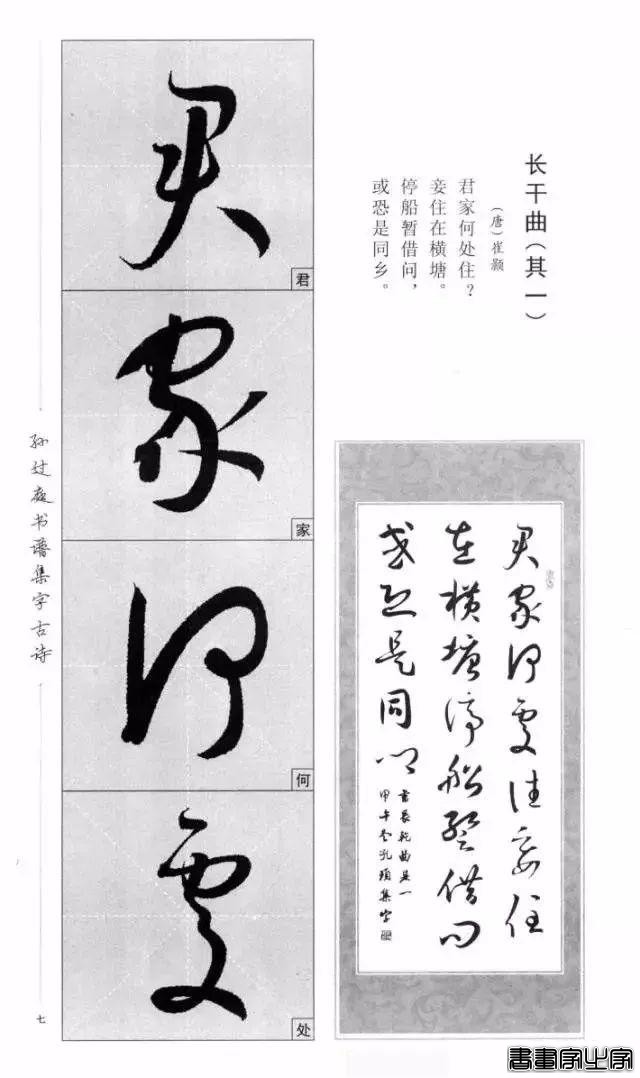 长干曲(其一)
(唐)崔颢
君家何处住?
妾住在横塘。
停船暂借问,
或恐是同乡。
君
君
家
家
何
何
处
处
君家何处住妾住
在横塘停船暂借问
或恐是同乡
孙过庭书谱集字古诗
七
書畫家之家